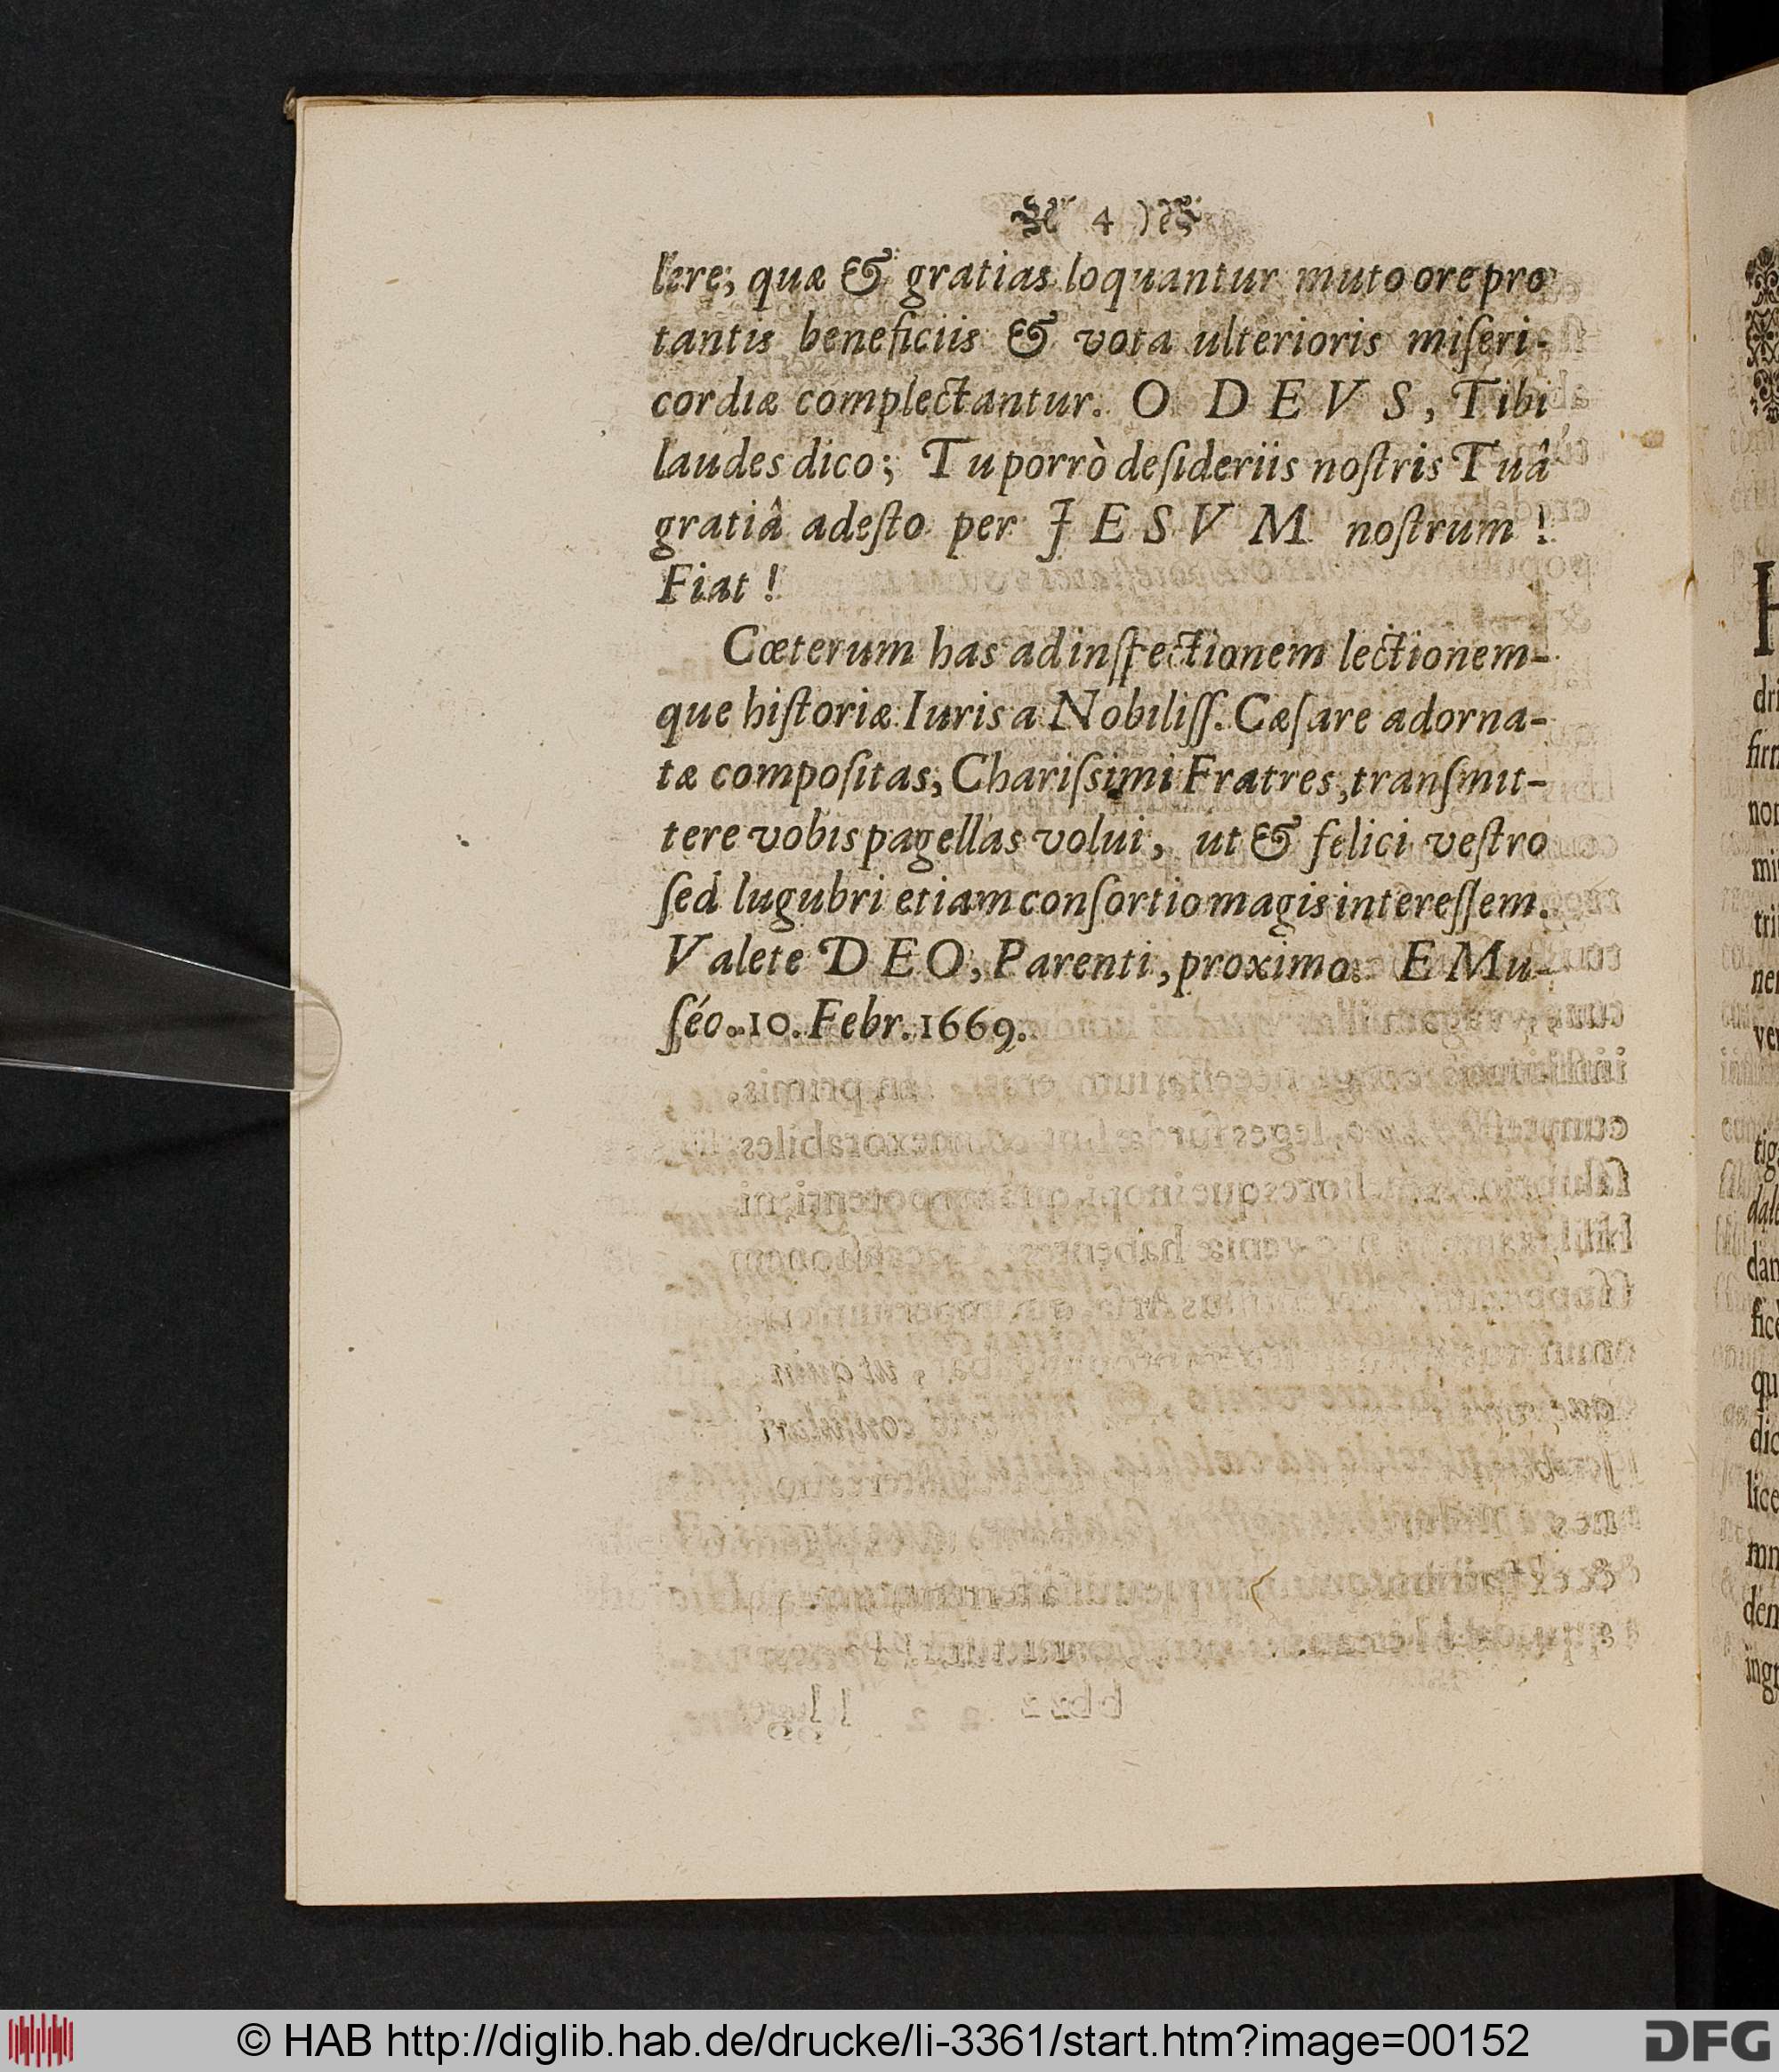 4 )
lere; quæ & gratias loquantur muto ore pro
tantis beneficiis & vota ulterioris miſeri-
cordiæ complectantur. O DEVS, Tibi
laudes dico; Tu porrò deſideriis noſtris Tuâ
gratiâ adeſto per JESVM noſtrum !
Fiat !
Cœterum has ad inſpectionem lectionem-
que hiſtoriæ Iuris a Nobiliſſ. Cæſare adorna-
tæ compoſitas, Chariſsimi Fratres, tranſmit-
tere vobis pagellas volui, ut & felici veſtro
ſed lugubri etiam conſortio magis intereſſem.
Valete DEO, Parenti, proximo. E Mu-
ſéo. 10. Febr. 1669.
H
dri
firn
non
mi
tri
ner
ver
tig
dale
dan
fice
qu
dic
lice
mn
den
ingr
© HAB http://diglib.hab.de/drucke/li-3361/start.htm?image=00152
DFG